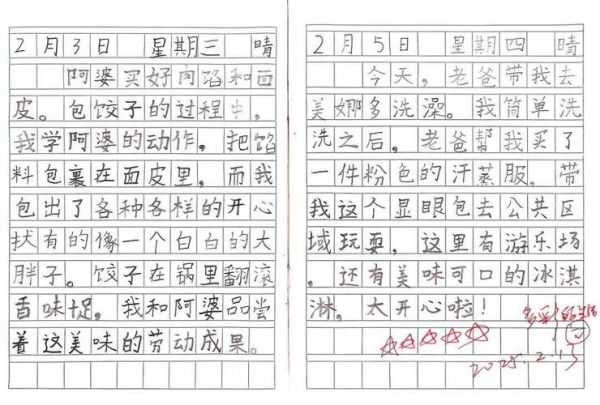 2月3日 星期三 晴
阿婆买好肉馅和面
皮。包饺子的过程中，
我学阿婆的动作，把馅
料包裹在面皮里，而我
包出了各种各样的开心
状有的像一个白白的大
胖子。饺子在锅里翻滚
香味十足，我和阿婆品尝
着这美味的劳动成果。
2月5日 星期四 晴
今天，老爸带我去
美娜多洗澡。我简单洗
洗之后，老爸帮我买了
一件粉色的汗蒸服。带
我这个显眼包去公共区
域玩耍，这里有游乐场
，还有美味可口的冰淇
淋。太开心啦！
多彩的生活
2025.2.13